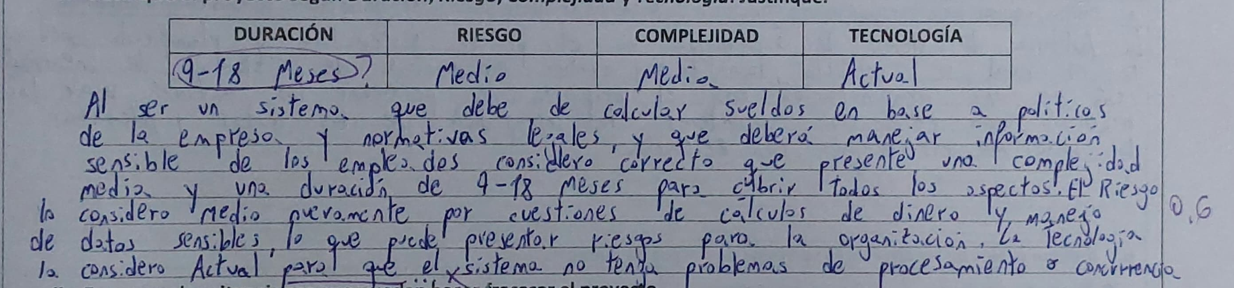 DURACIÓN RIESGO COMPLEJIDAD TECNOLOGÍA
9-18 Meses? Medio Media Actual
Al ser un sistema que debe de calcular sueldos en base a politicas
de la empresa y normativas legales, y que deberá manejar información
sensible de los empleados considero correcto que presente una complejidad
media y una duración de 9-18 meses para cubrir todos los aspectos. El Riesgo
lo considero Medio nuevamente por cuestiones de cálculos de dinero y manejo
0,6
de datos sensibles, lo que puede presentar riesgos para la organización. La Tecnología
la considero Actual para que el sistema no tenga problemas de procesamiento o concurrencia